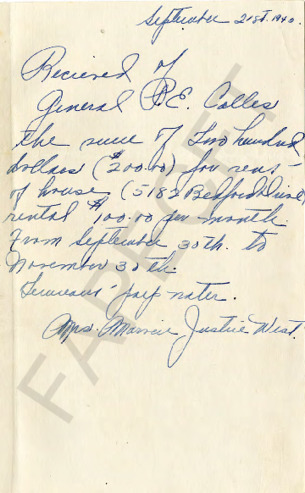 September 21st. 1940.
Recieved of
General P.E. Calles
the sum of Two hundred
dollars ($200.00) for rent
of house (5182 Bedford Drive)
rental $100.00 per month.
From September 30th. to
November 30th.
pay water.
Mrs. Justice West.
FAPECFT